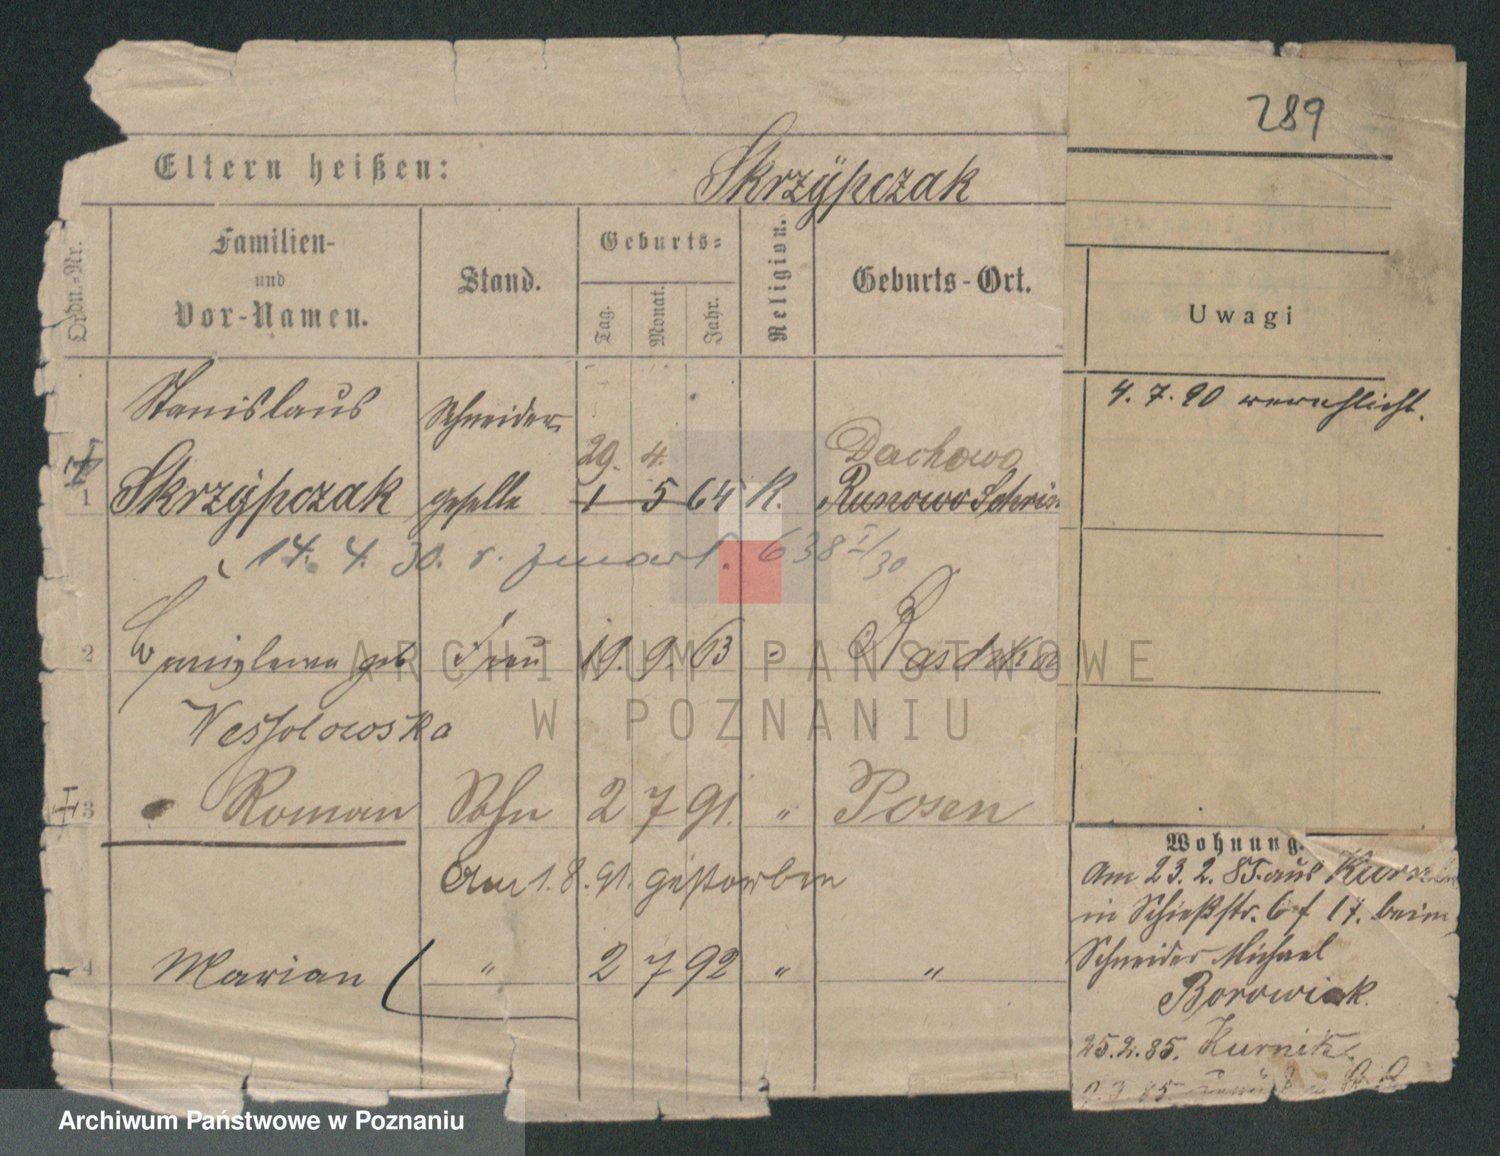 289
Eltern heißen:
Skrzÿpczak
Ordn.-Nr.
Familien-
und
Vor-Namen.
Stand.
Geburts-
Tag.
Monat.
Jahr.
Religion.
Geburts-Ort.
Uwagi
4. 7. 90 verehlicht.
Stanislaus
Schneider
29. 4.
Dachowo
1 Skrzÿpczak geselle 1 5 64 K. Runowo Schrim
14. 4. 30. r. zmarł. 638 I/30
2 geb Frau 19. 9. 63 -
Wessolowska
3 Roman Sohn 2 7 91. " Posen
Am 1. 8. 91. gestorben
4 Marian " 2 7 92 " "
Wohnung.
Am 23. 2. 85. aus
in Schießstr. 6 f 17. beim
Schneider Michael
Borowiak.
25. 2. 85. Kurnik.
ARCHIWUM PAŃSTWOWE
W POZNANIU
Archiwum Państwowe w Poznaniu